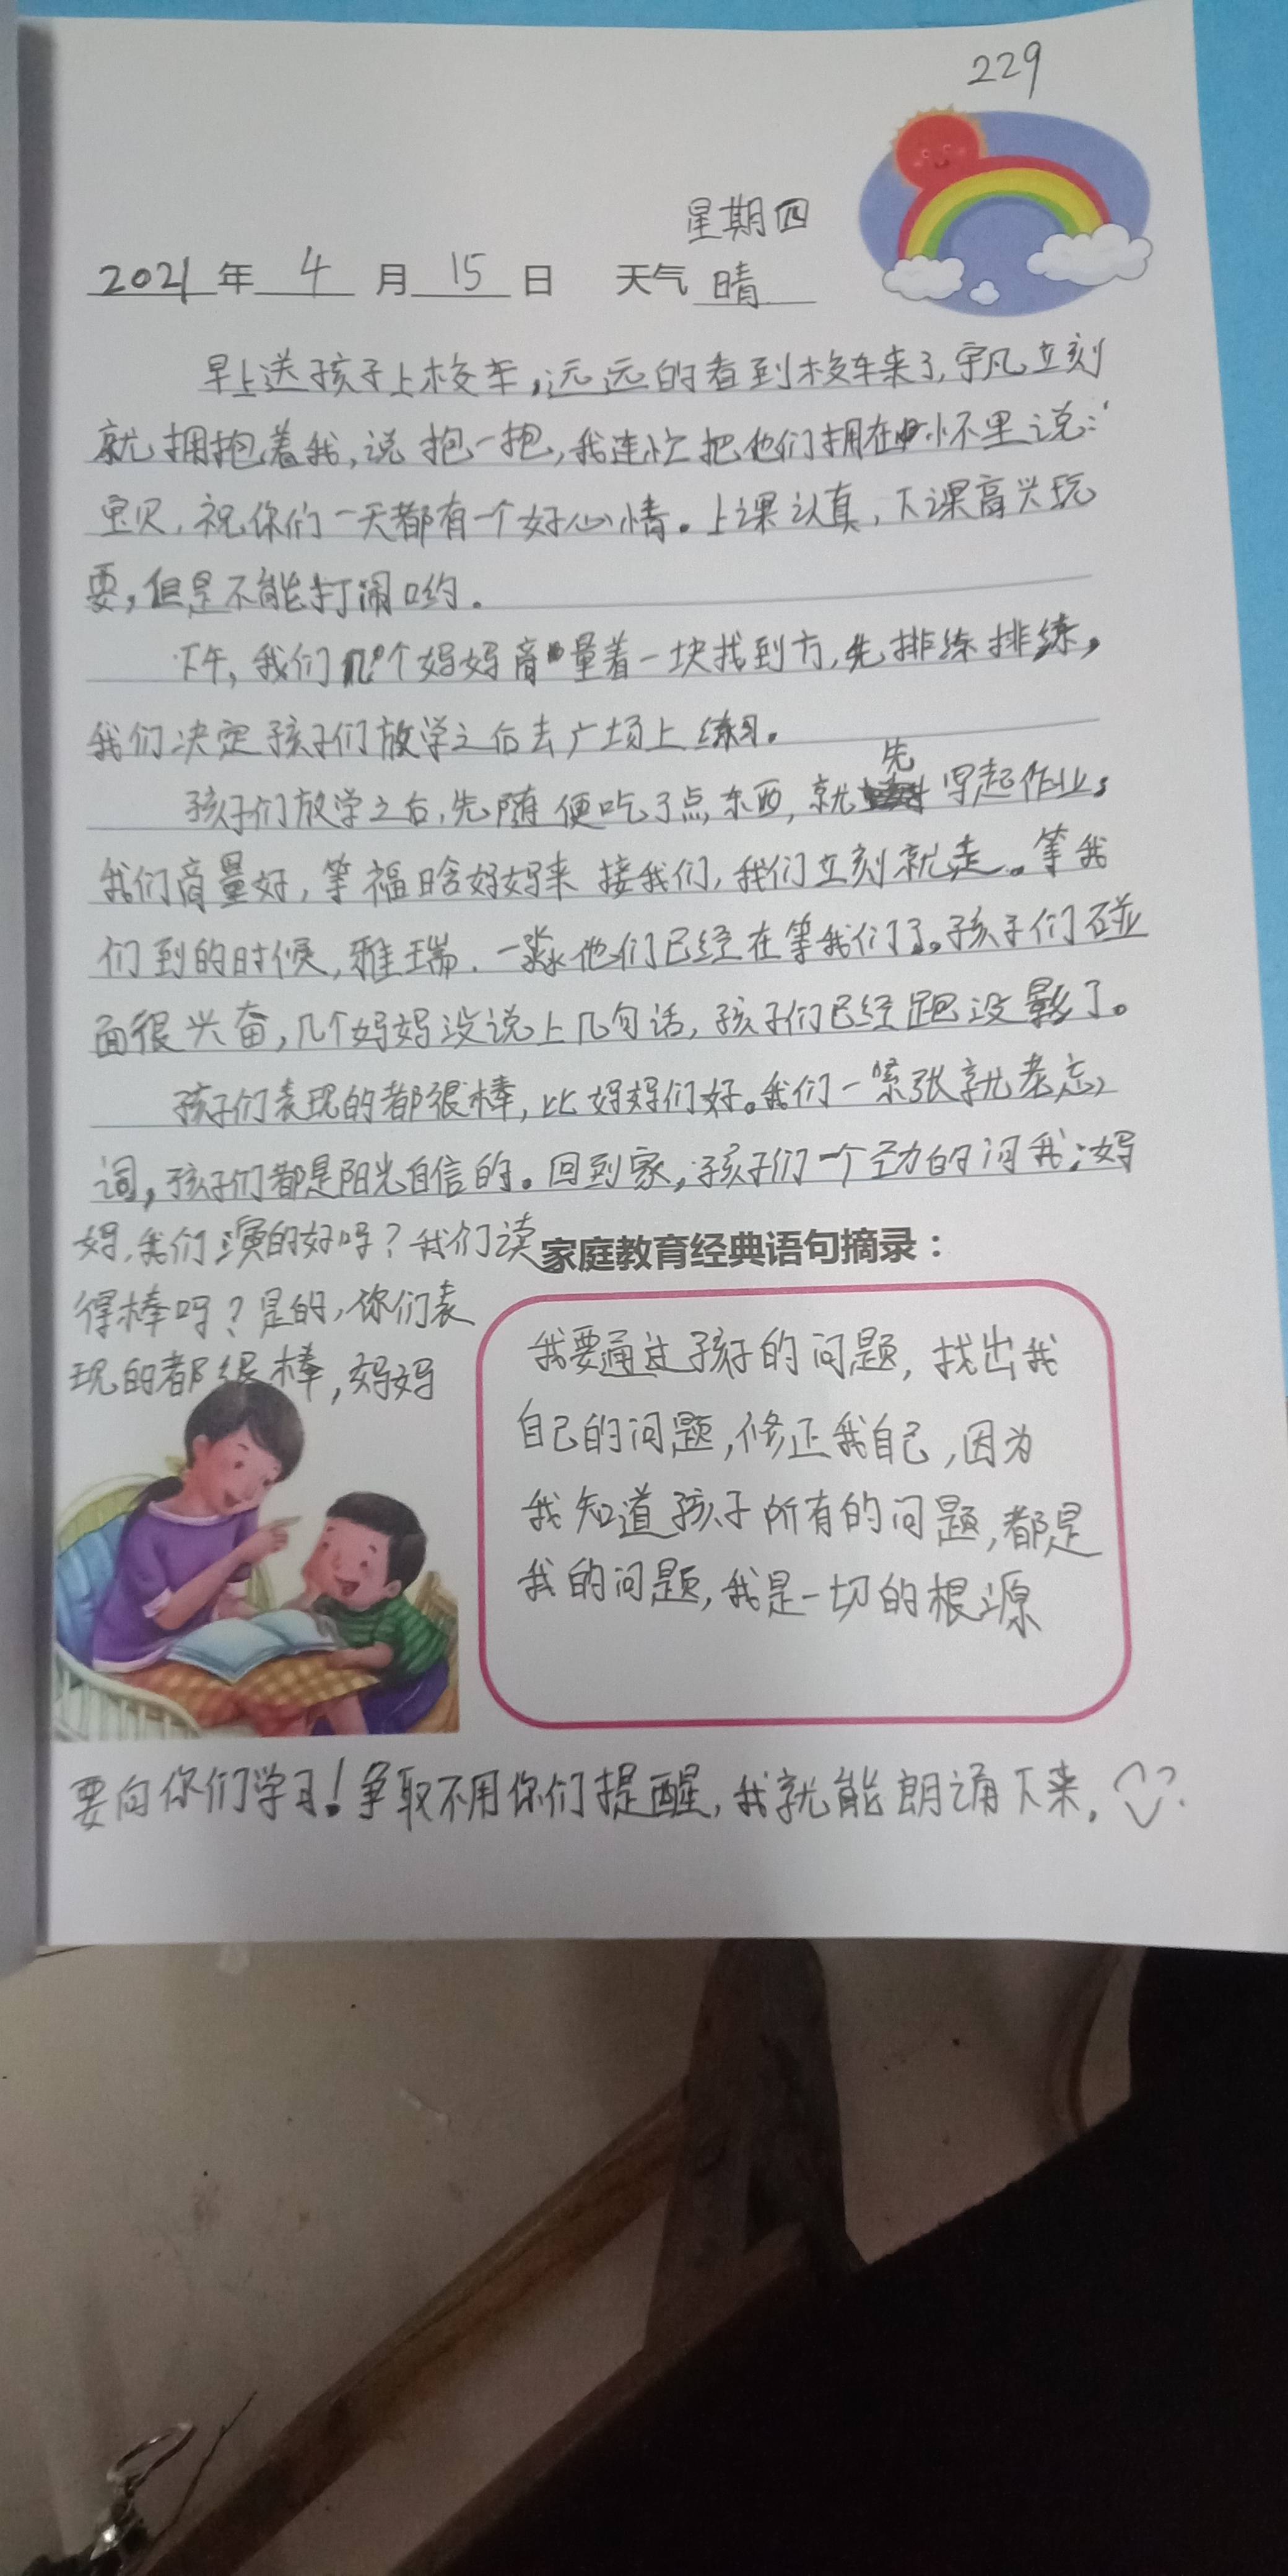 229
星期四
2021年 4 月 15 日 天气 晴
早上送孩子上校车,远远的看到校车来了,宇凡立刻
就拥抱着我,说抱一抱,我连忙把他们拥在怀里说:
宝贝,祝你们一天都有一个好心情。上课认真,下课高兴玩
耍,但是不能打闹哟。
下午,我们几个妈妈商量着一块找到方,先排练排练,
我们决定孩子们放学之后去广场上练习。
孩子们放学之后,先随便吃了点东西,就先写起作业。
我们商量好,等福晗妈妈来接我们,我们立刻就走。等我
们到的时候,雅瑞.一淼他们已经在等我们了。孩子们碰
面很兴奋,几个妈妈没说上几句话,孩子们已经跑没影了。
孩子们表现的都很棒,比妈妈们好。我们一紧张就老忘
词,孩子们都是阳光自信的。回到家,孩子们一个劲的问我:妈
妈,我们演的好吗?我们读
得棒吗?是的,你们表
现的都很棒,妈妈
家庭教育经典语句摘录:
我要通过孩子的问题,找出我
自己的问题,修正我自己,因为
我知道孩子所有的问题,都是
我的问题,我是一切的根源
要向你们学习!争取不用你们提醒,我就能朗诵下来.